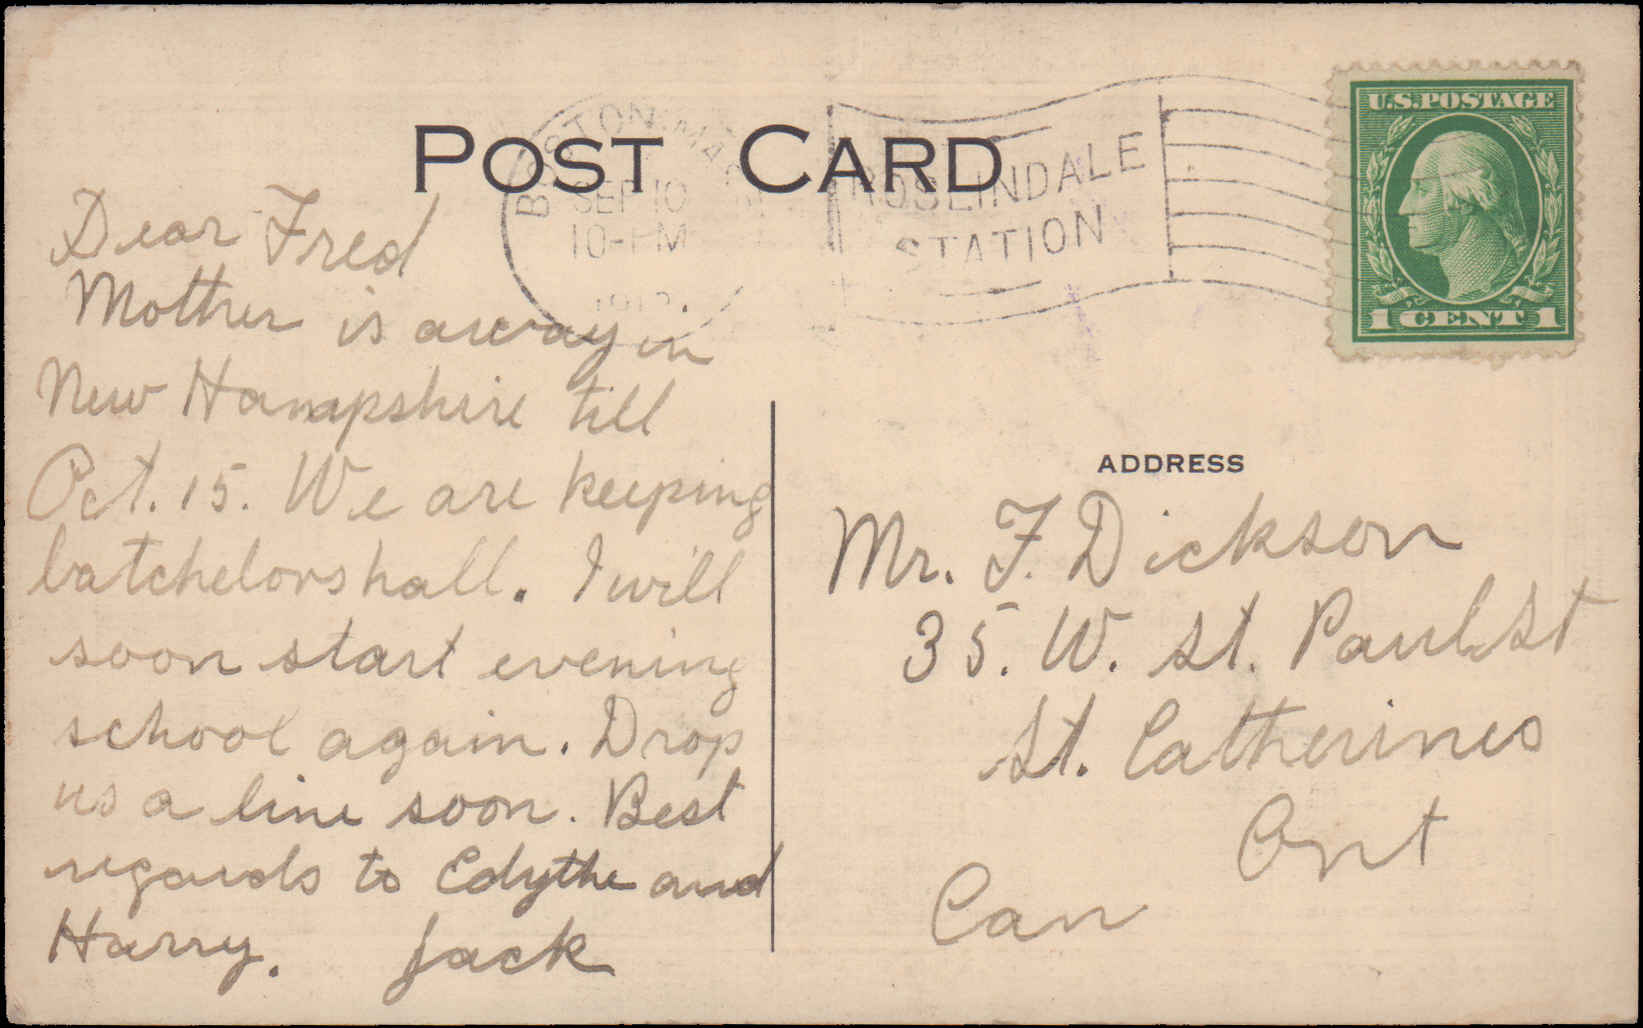 POST CARD
BOSTON, MASS.
SEP 10
10-PM
ROSLINDALE
STATION
U.S.POSTAGE
1 CENT 1
Dear Fred
Mother is away in
New Hampshire till
Oct. 15. We are keeping
batchelors hall. I will
soon start evening
school again. Drop
us a line soon. Best
regards to Edythe and
Harry. Jack
ADDRESS
Mr. F. Dickson
35. W. St. Paul St
St. Catherines
Ont
Can